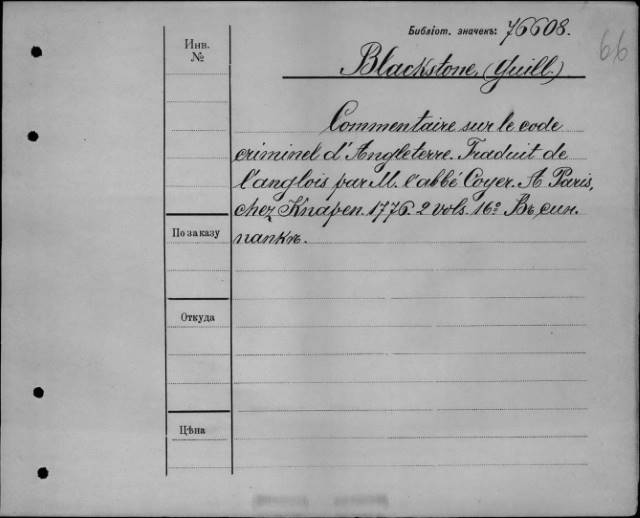 Библіот. значекъ: 76608.
66
Инв.
№
Blackstone, (Guill.)
Commentaire sur le code
criminel d'Angleterre. Traduit de
l'anglois par M. l'abbé Coyer. A Paris,
chez Knapen. 1776. 2 vols. 16º. Въ син.
папкѣ.
По заказу
Откуда
Цѣна